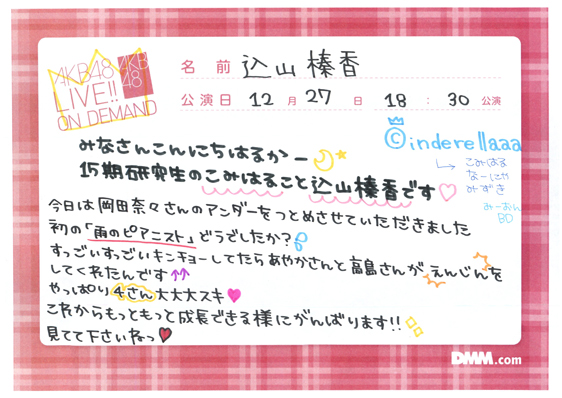 AKB48
LIVE!!
ON DEMAND
AKB
48
名前 込山榛香
公演日 12月27日 18:30公演
みなさんこんにちはるかー
15期研究生のこみはること込山榛香です
©inderellaaa
こみはる
なーにゃ
みずき
みーおん
BD
今日は岡田奈々さんのアンダーをつとめさせていただきました
初の「雨のピアニスト」どうでしたか？
すっごいすっごいキンチョーしてたらあやかさんと高島さんがえんじんを
してくれたんです↑↑
やっぱり4さん大大大スキ♥
これからもっともっと成長できる様にがんばります!!
見てて下さいねっ♥
DMM.com